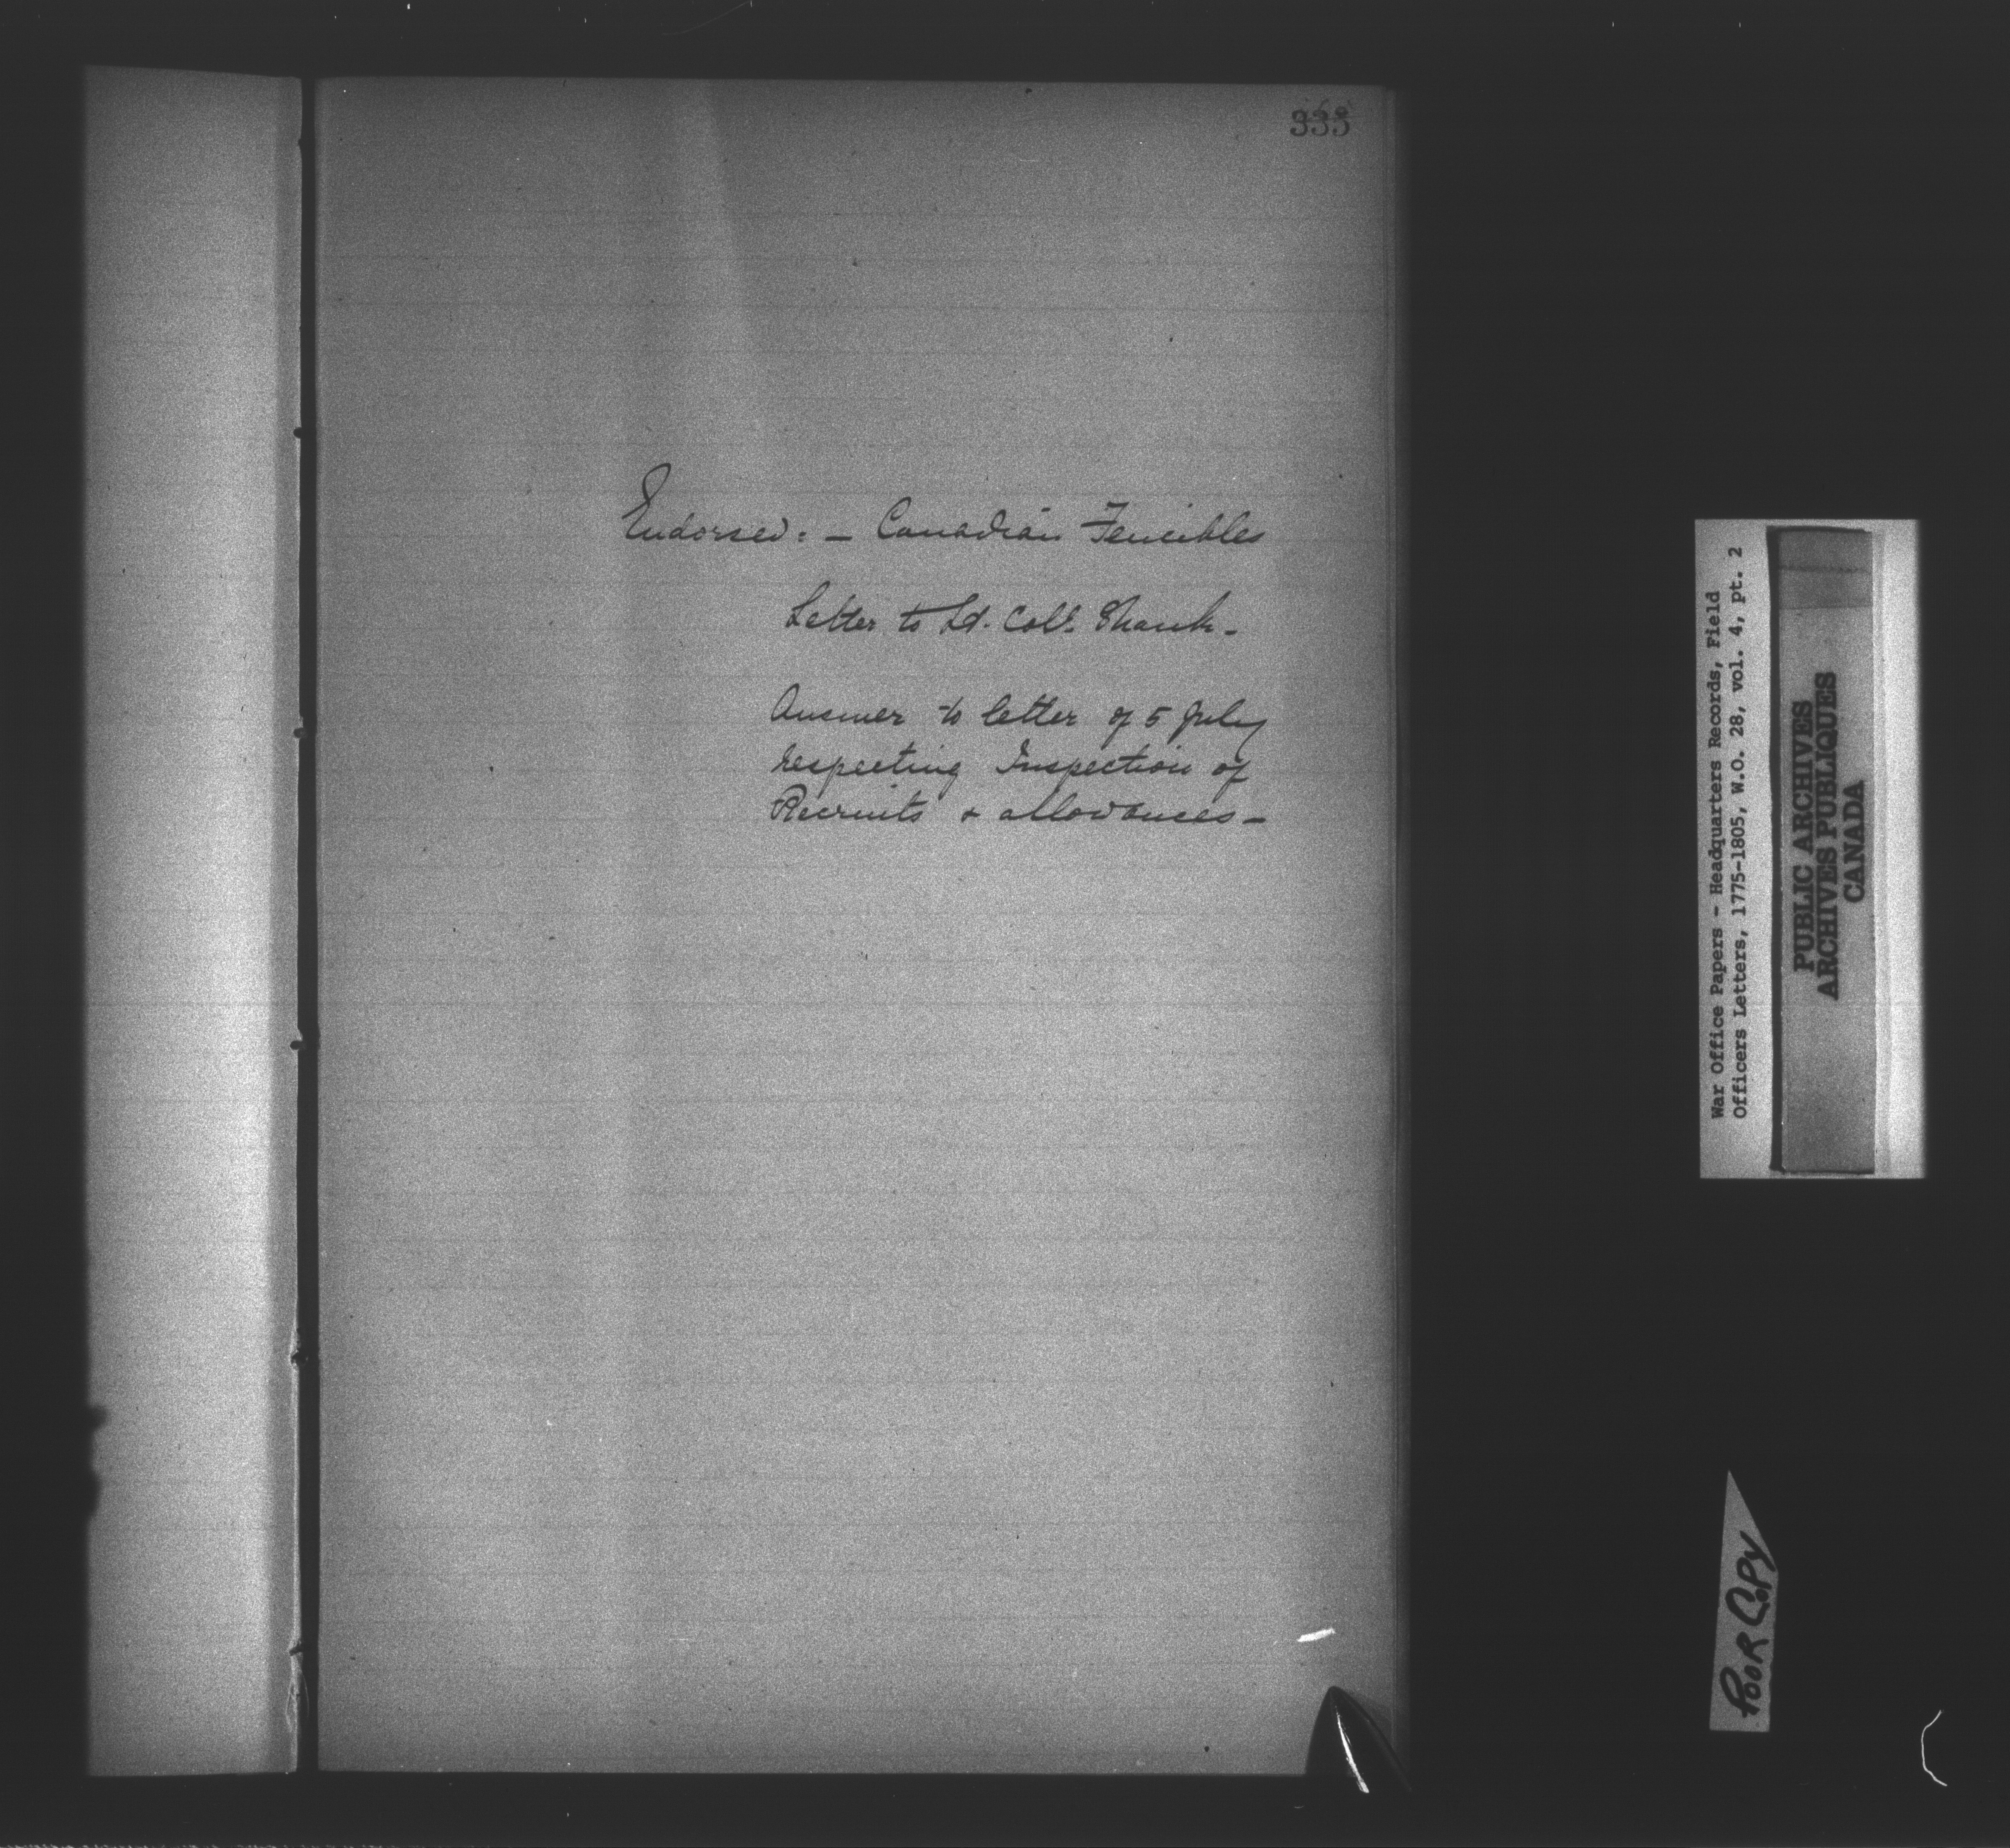 333
Endorsed: - Canadian Fencibles
Letter to Lt. Coll. Shank -
Answer to letter of 5 July
respecting Inspection of
Recruits & allowances -
War Office Papers - Headquarters Records, Field
Officers Letters, 1775-1805, W.O. 28, vol. 4, pt. 2
PUBLIC ARCHIVES
ARCHIVES PUBLIQUES
CANADA
POOR COPY